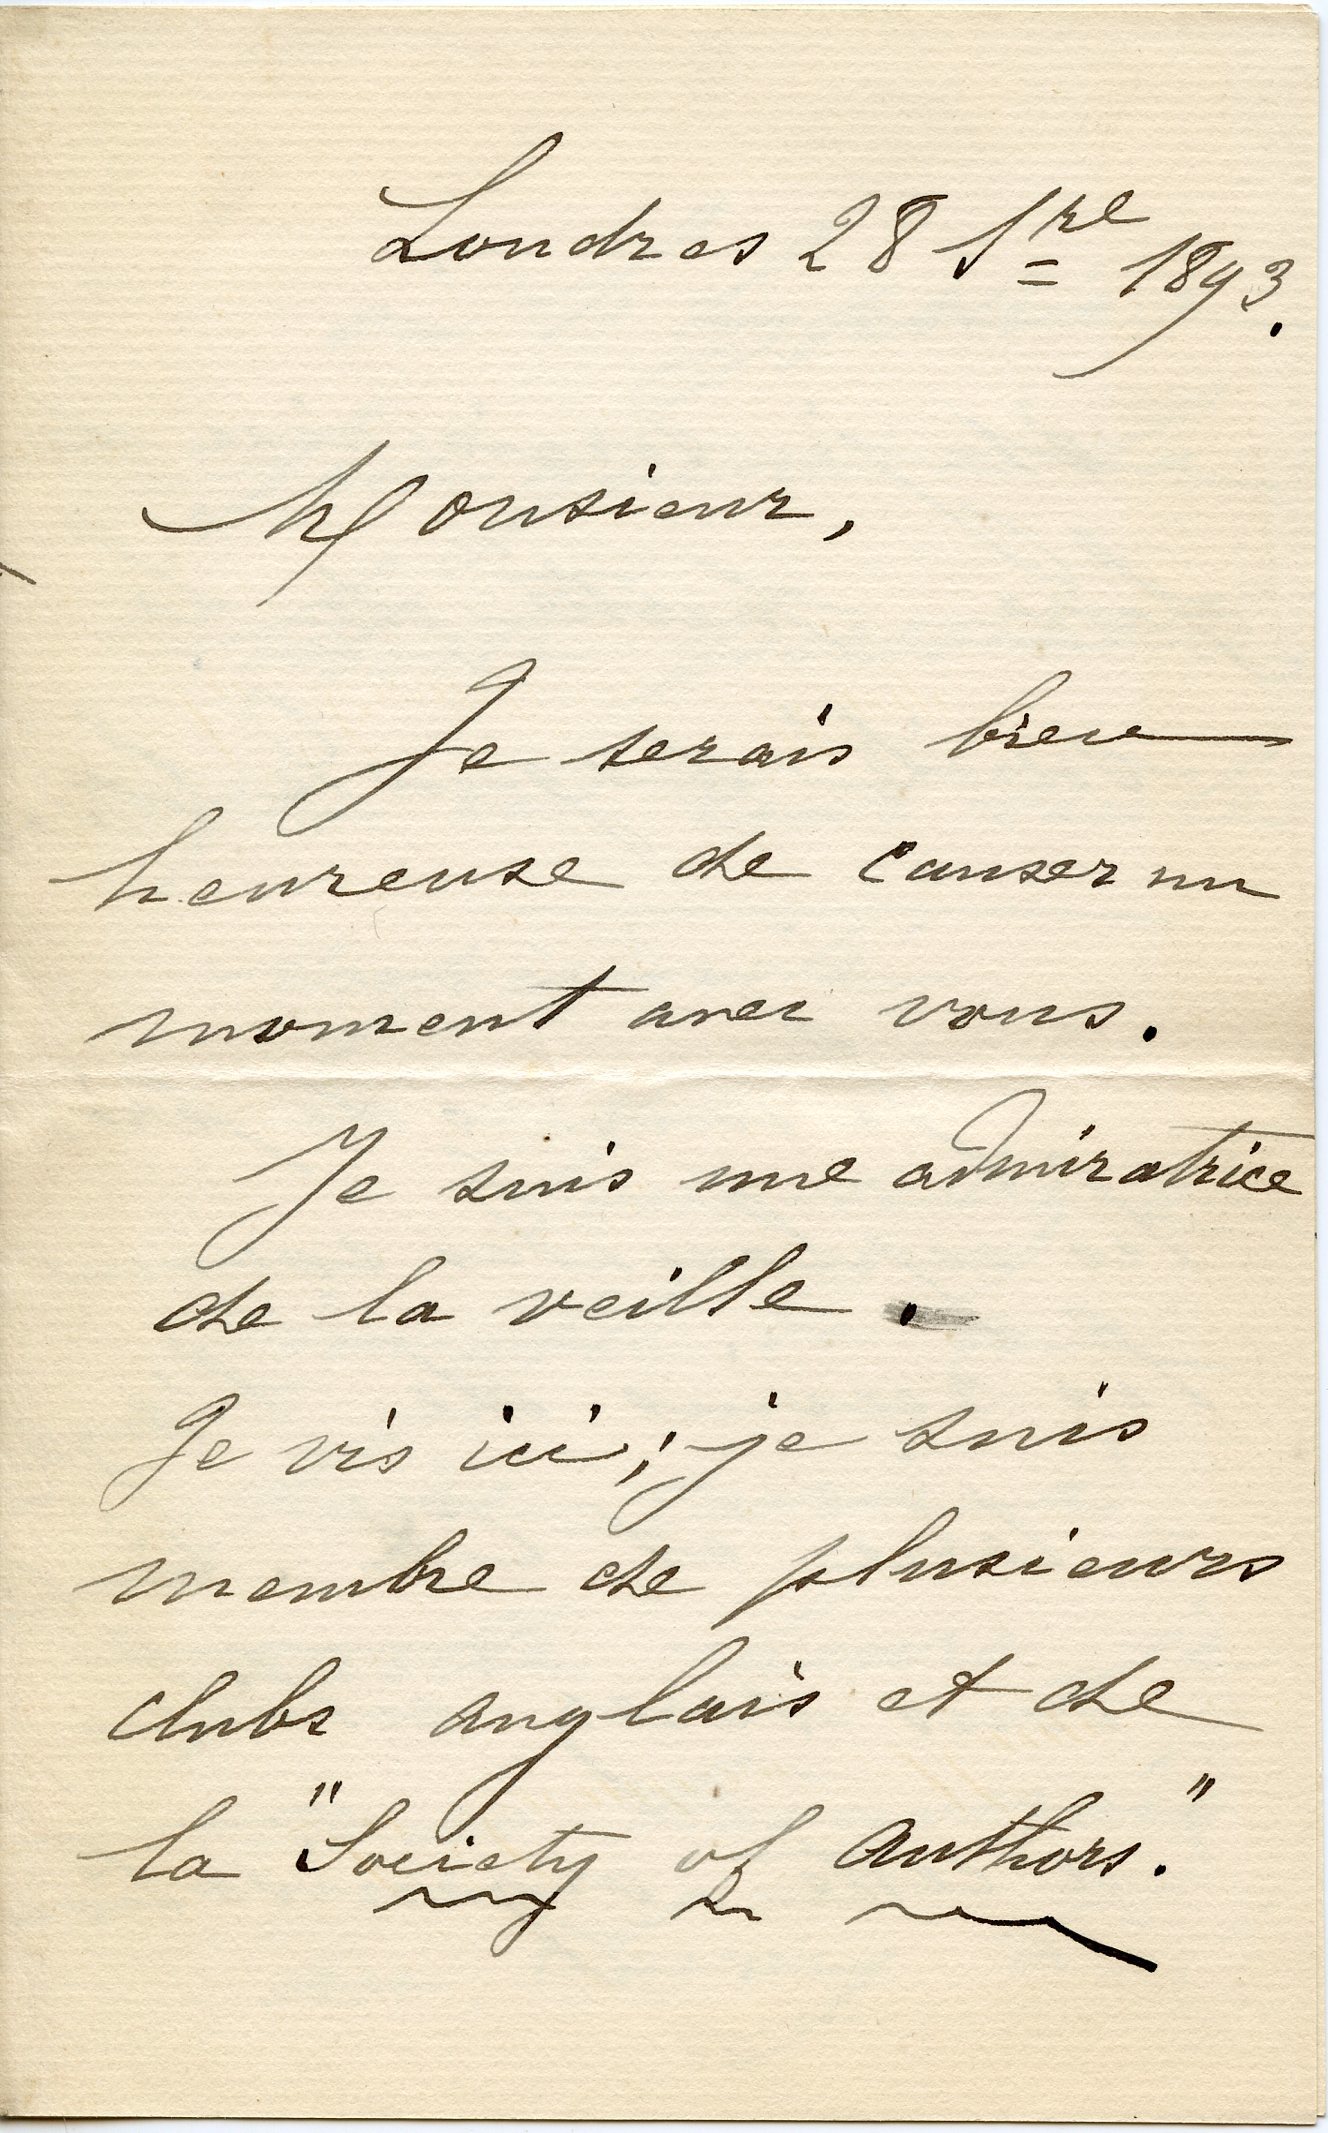 Londres 28 Sre 1893.
Monsieur,
Je serais bien
heureuse de causer un
moment avec vous.
Je suis une admiratrice
de la veille.
Je vis ici; je suis
membre de plusieurs
clubs anglais et de
la "Society of Authors."